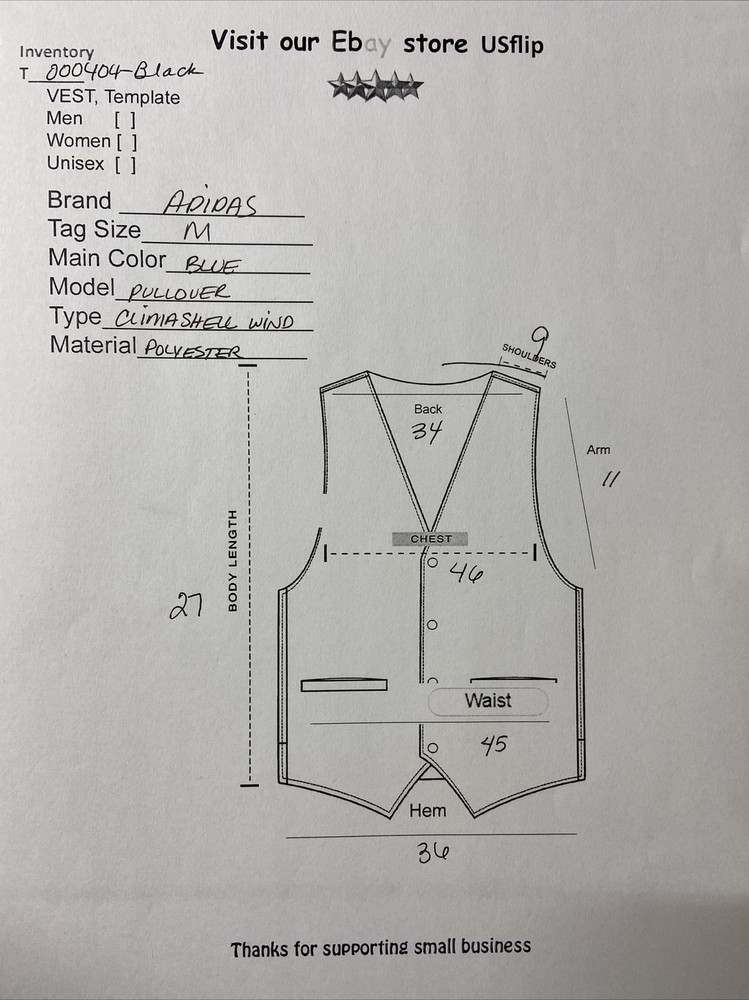 Visit our Ebay store USflip
Inventory
T 000404-Black
VEST, Template
Men [ ]
Women [ ]
Unisex [ ]
Brand ADIDAS
Tag Size M
Main Color BLUE
Model PULLOVER
Type CLIMASHELL WIND
Material POLYESTER
9
SHOULDERS
Back
34
Arm
11
CHEST
46
BODY LENGTH
27
Waist
45
Hem
36
Thanks for supporting small business